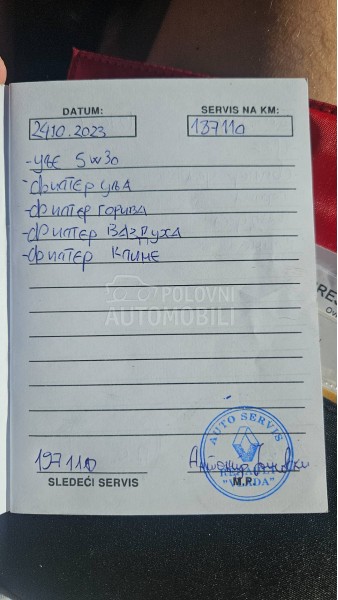 DATUM: SERVIS NA KM:
24.10.2023 137110
-уље 5w30
-филтер уља
-филтер горива
-филтер ваздуха
-филтер клине
POLOVNI
AUTOMOBILI
AUTO SERVIS
197110
SLEDEĆI SERVIS M.P.